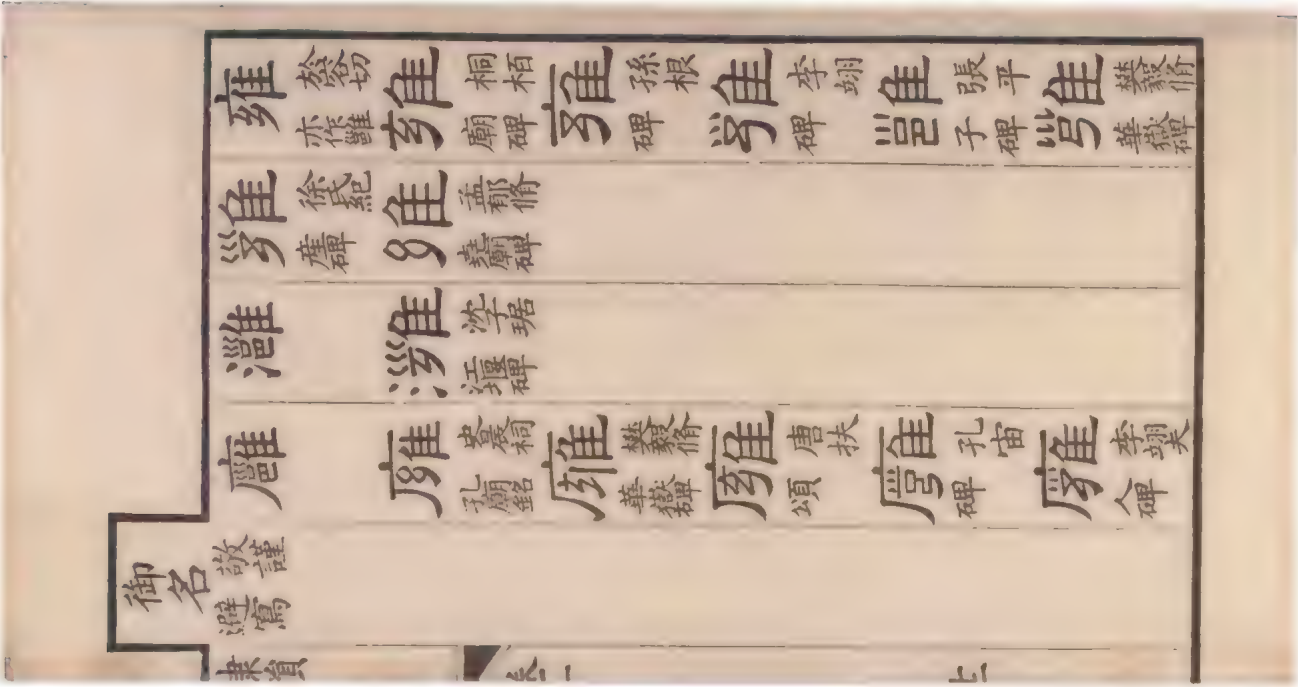 雍 於容切亦作雝 雍 桐柏廟碑 雍 孫根碑 雍 李翊碑 雝 張平子碑 雝 樊毅脩華嶽碑
雍 徐氏紀產碑 雍 孟郁脩堯廟碑
灉 灉 沈子琚江堰碑
廱 廱 史晨祠孔廟銘 廱 樊毅脩華嶽碑 廱 唐扶頌 廱 孔宙碑 廱 李翊夫人碑
御名 敬謹避寫